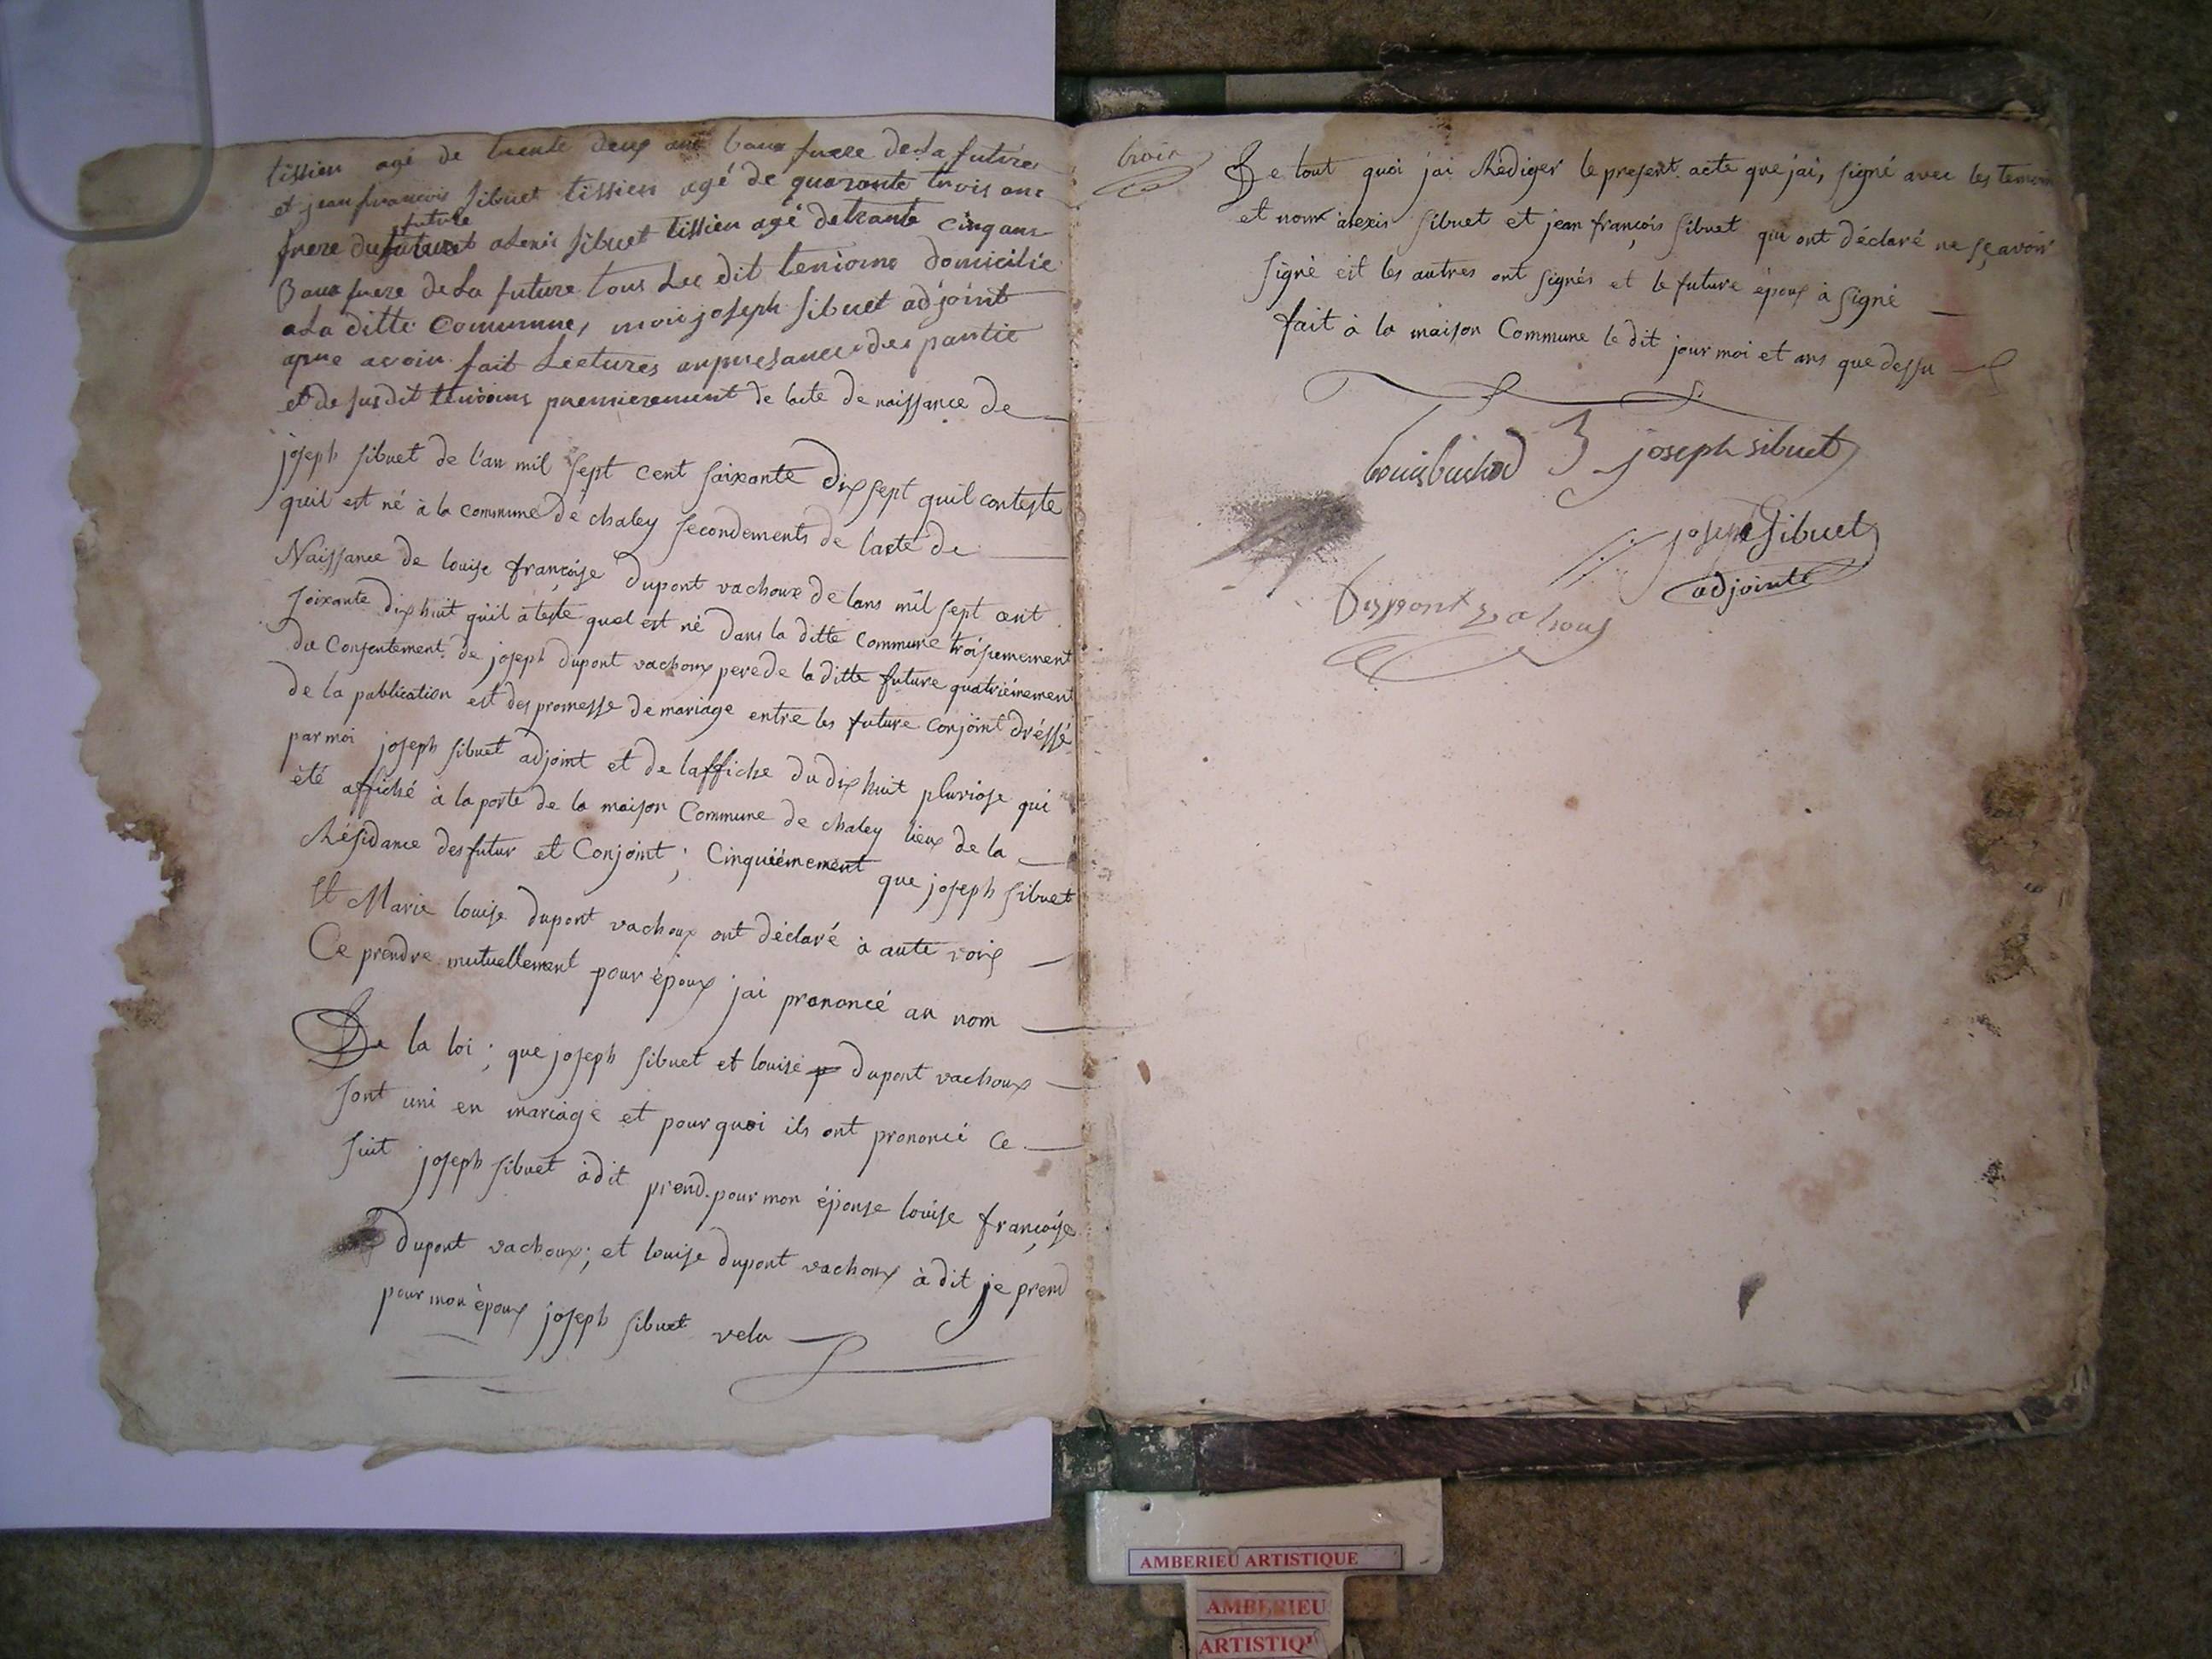 tissieu agé de trente deux ans baux frere de La future
et jean francois sibuet tissieu agé de quarante trois ans
future
frere du alexis sibuet tissieu agé de trante cinq ans
Baux frere de La future tous Les dit temoins domicilié
a La ditte Commune, moi joseph sibuet adjoint
apre avoir fait Lectures anpresance des partie
et de susdit temoins premierement de lacte de naissance de
joseph sibuet de l'an mil sept cent soixante dix sept quil conteste
quil est né à la commune de chaley secondements de lacte de
Naissance de louise françoise dupont vachoux de lans mil sept cent
soixante dix huit quil ateste quel est né dans la ditte commune troisiemement
du Consentement de joseph dupont vachoux pere de la ditte future quatriémement
de la publication est des promesse de mariage entre les future conjoint dréssé
par moi joseph sibuet adjoint et de laffiche du dix huit pluviose qui
été affiché à la porte de la maison Commune de chaley lieux de la
Résidance des futur et Conjoint ; Cinquiémement que joseph sibuet
Et Marie louise dupont vachoux ont déclaré à aute voix
Ce prendre mutuellement pour époux jai prononcé au nom
De la loi ; que joseph sibuet et louise dupont vachoux
sont uni en mariage et pour quoi ils ont prononcé ce
suit joseph sibuet à dit prend pour mon épouse louise françoise
dupont vachoux ; et louise dupont vachoux à dit je prend
pour mon époux joseph sibuet velu
trois
De tout quoi jai Rédiger le present acte que jai, signé avec les temoin
et nom alexis sibuet et jean françois sibuet qui ont déclaré ne sçavoir
signé est les autres ont signés et le future époux à signé
fait à la maison Commune le dit jour moi et ans que dessu
joseph sibuet
joseph Sibuet
adjointe
Dupont
AMBERIEU ARTISTIQUE
AMBERIEU